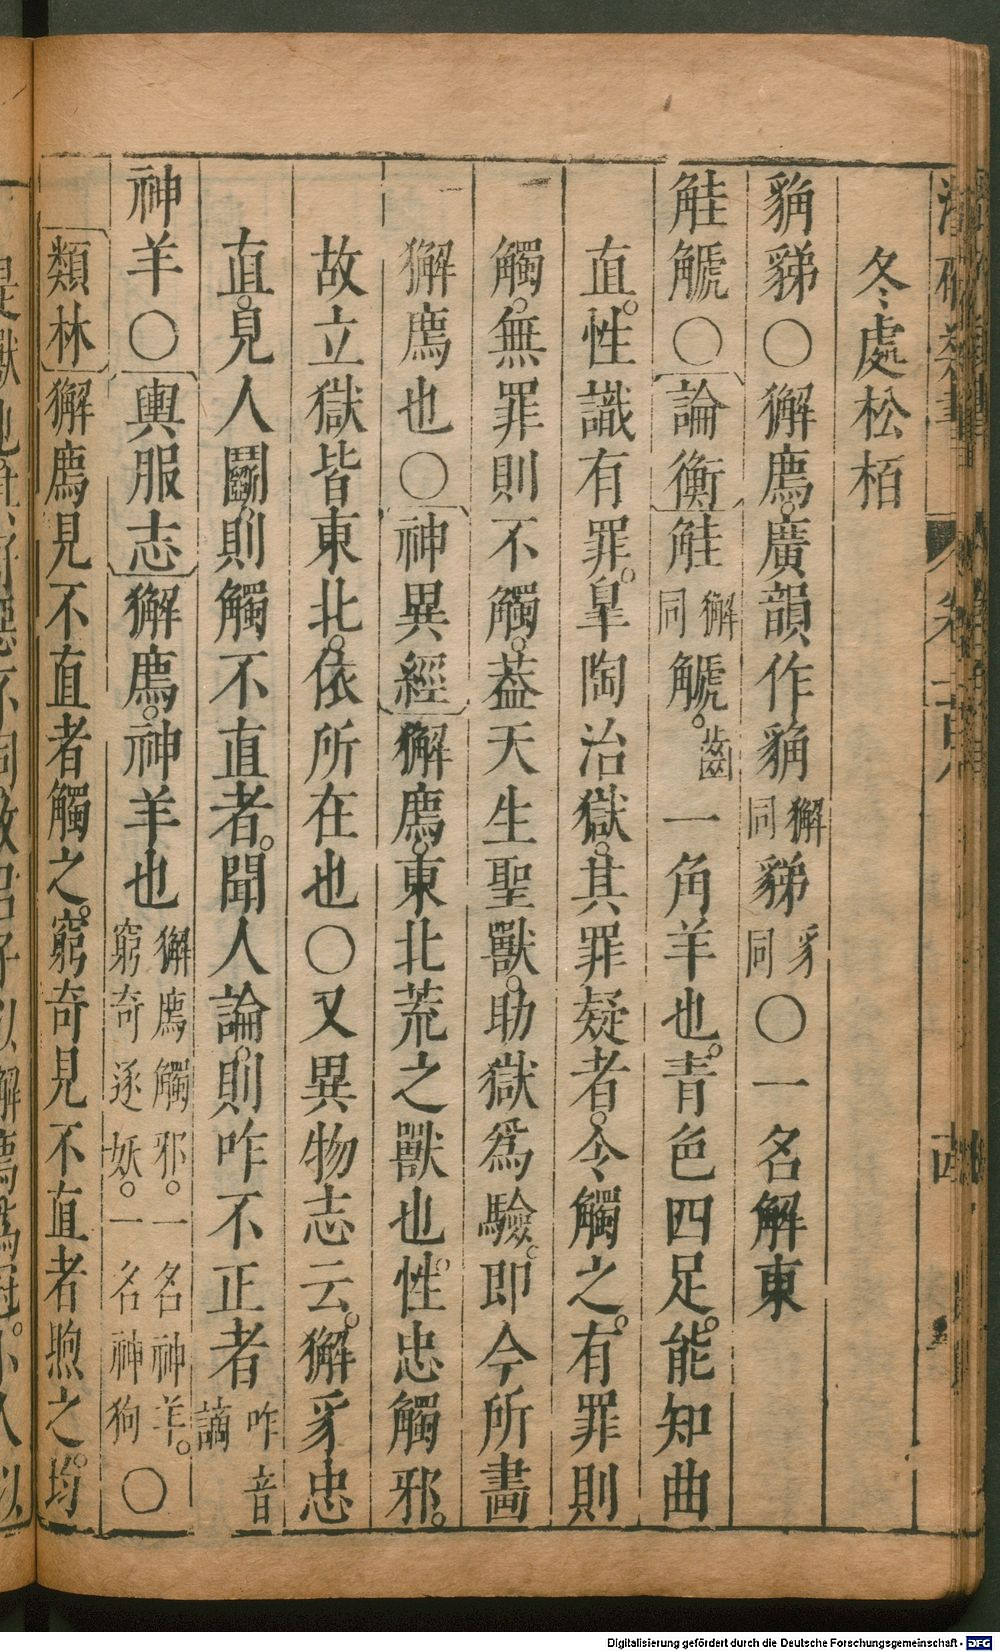 冬處松栢
貒㺄〇獬廌。廣韻作貒獬同㺄豸同〇一名解東
觟䚦〇論衡觟獬同䚦。齒一角羊也。青色四足。能知曲
直。性識有罪。皐陶治獄。其罪疑者。令觸之。有罪則
觸。無罪則不觸。葢天生聖獸。助獄爲驗。即今所畵
獬廌也〇神異經獬廌。東北荒之獸也。性忠觸邪。
故立獄皆東北。依所在也〇又異物志云。獬豸忠
直。見人鬬。則觸不直者。聞人論。則咋不正者咋音謫
神羊〇輿服志獬廌。神羊也獬廌觸邪。一名神羊。窮奇逐妖。一名神狗〇
類林獬廌見不直者觸之。窮奇見不直者煦之。均
Digitalisierung gefördert durch die Deutsche Forschungsgemeinschaft - DFG